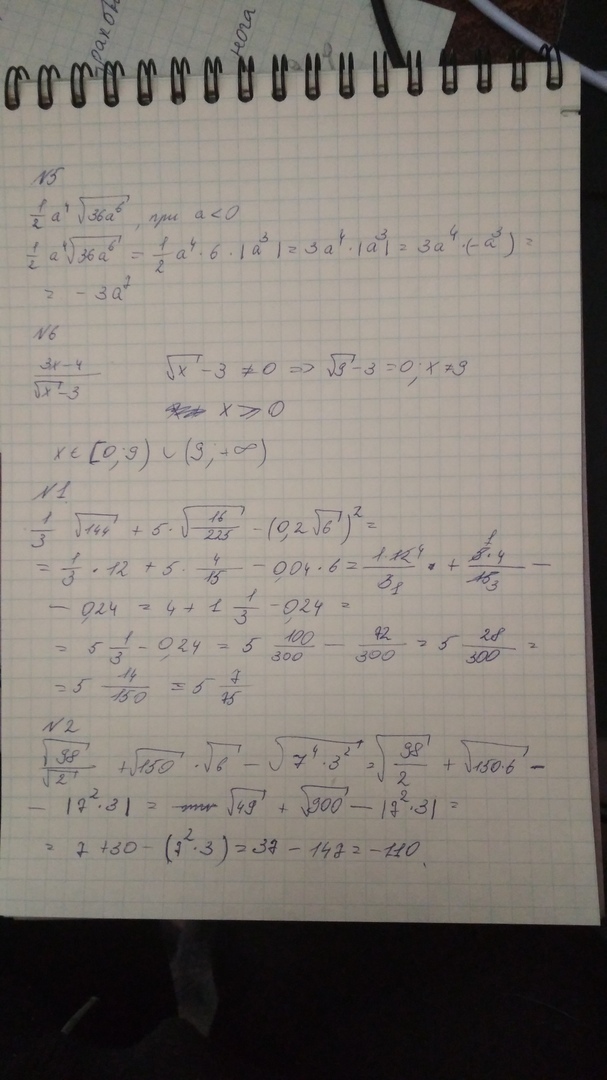 рахов
нога
N5
1/2 a⁴ √36a⁶, при a<0
1/2 a⁴√36a⁶ = 1/2 a⁴ · 6 · |a³| = 3a⁴ · |a³| = 3a⁴ · (-a³) =
= - 3a⁷
N6
3x-4/√x-3 √x - 3 ≠ 0 => √9 - 3 = 0; x ≠ 9
x ≥ 0
x ∈ [0; 9) ∪ (9; +∞)
N1.
1/3 √144 + 5·√16/225 - (0,2√6)² =
= 1/3 · 12 + 5 · 4/15 - 0,04 · 6 = 1 12 4/3 1 · + 1 5·4/15 3 -
- 0,24 = 4 + 1 1/3 - 0,24 =
= 5 1/3 - 0,24 = 5 100/300 - 72/300 = 5 28/300 =
= 5 14/150 = 5 7/75
N2
√98/√2 + √150 · √6 - √7⁴·3² = √98/2 + √150·6 -
- |7²·3| = √49 + √900 - |7²·3| =
= 7 + 30 - (7²·3) = 37 - 147 = -110.